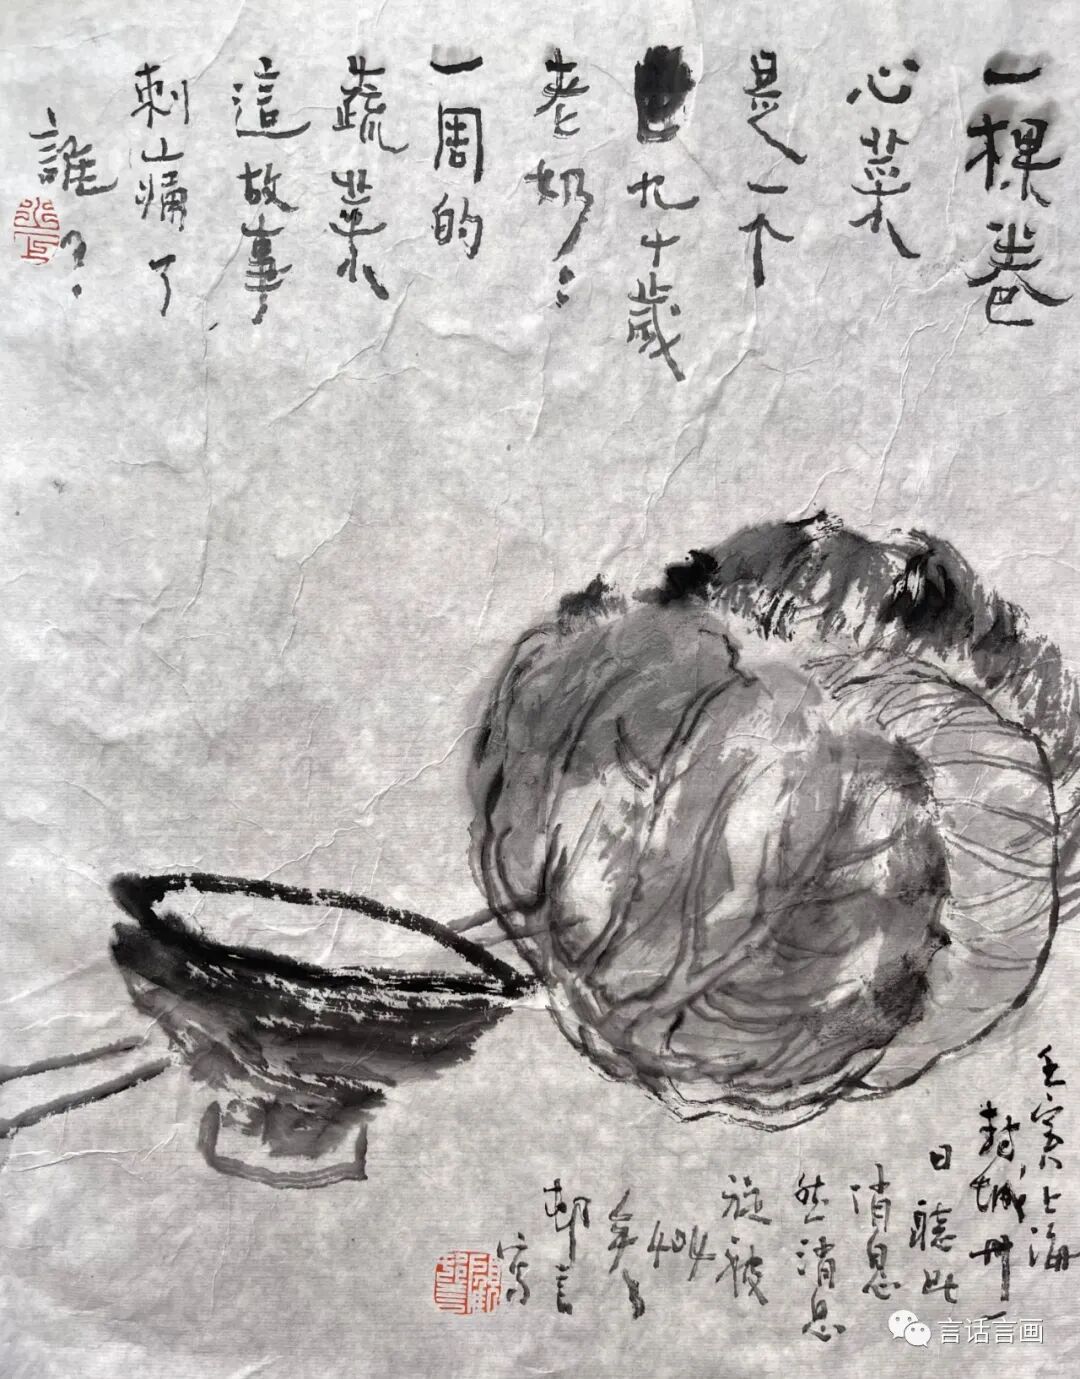 一棵卷
心菜
是一个
九十歲
老奶〻
一周的
蔬菜
這故事
刺痛了
誰？
壬寅上海
封城卅一
日聽此
消息
然消息
旋被
404
矣
邨言
寫
言话言画